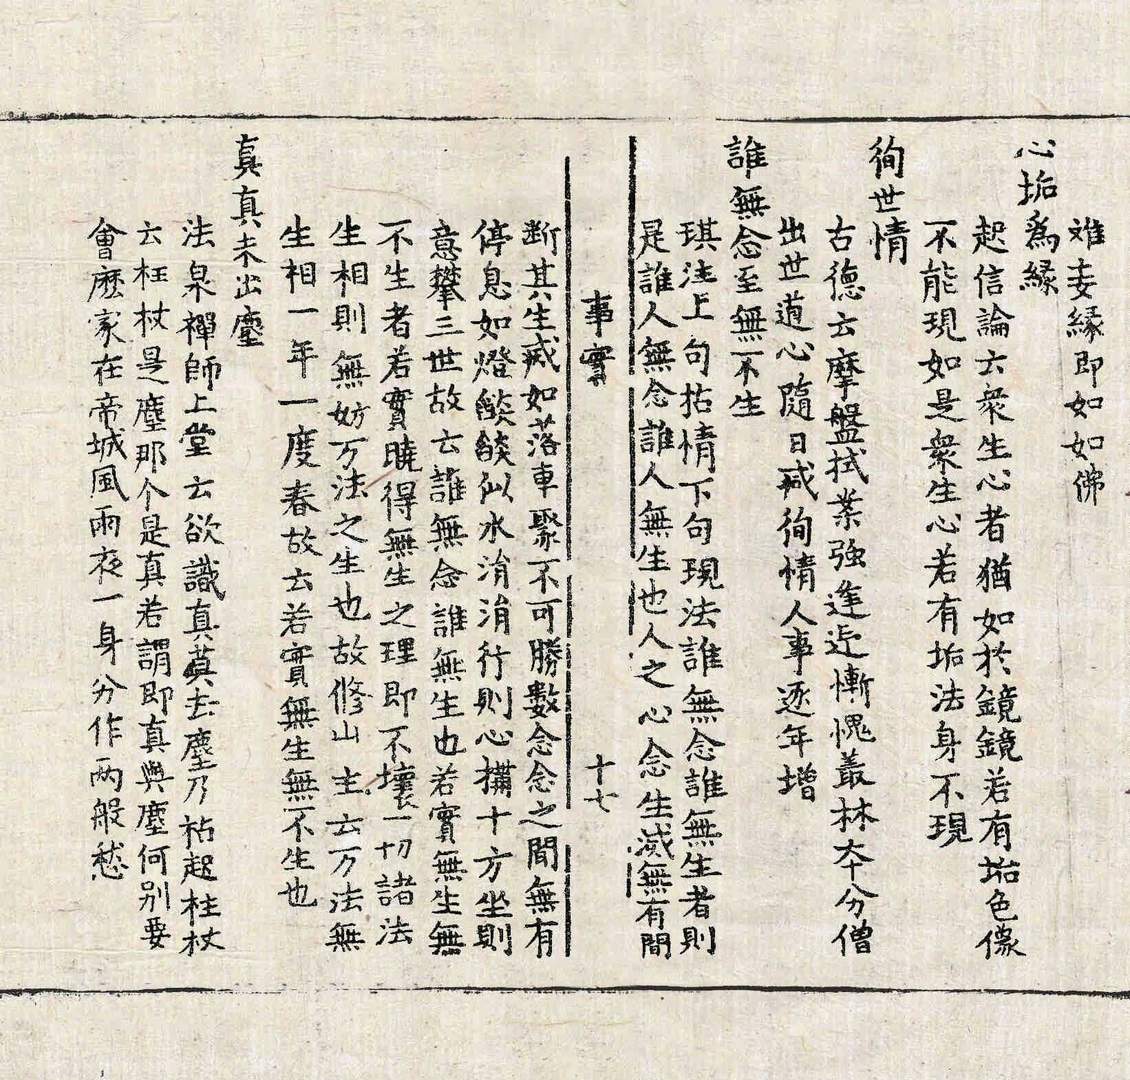 雖妄緣即如如佛
心垢為緣
起信論云衆生心者猶如於鏡鏡若有垢色像
不能現如是衆生心若有垢法身不現
徇世情
古德云摩盤拭案強逢迎慚愧叢林本分僧
出世道心隨日減徇情人事逐年增
誰無念至無不生
琪注上句拈情下句現法誰無念誰無生者則
是誰人無念誰人無生也人之心念生滅無有間
事實
十七
断其生滅如落車聚不可勝數念念之間無有
停息如燈焰焰似水涓涓行則心攝十方坐則
意攀三世故云誰無念誰無生也若實無生無
不生者若實曉得無生之理即不壞一切諸法
生相則無妨万法之生也故修山主云万法無
生相一年一度春故云若實無生無不生也
真真未出塵
法泉禪師上堂云欲識真真去塵乃拈起柱杖
云柱杖是塵那个是真若謂即真與塵何別要
會麽家在帝城風雨夜一身分作两般愁